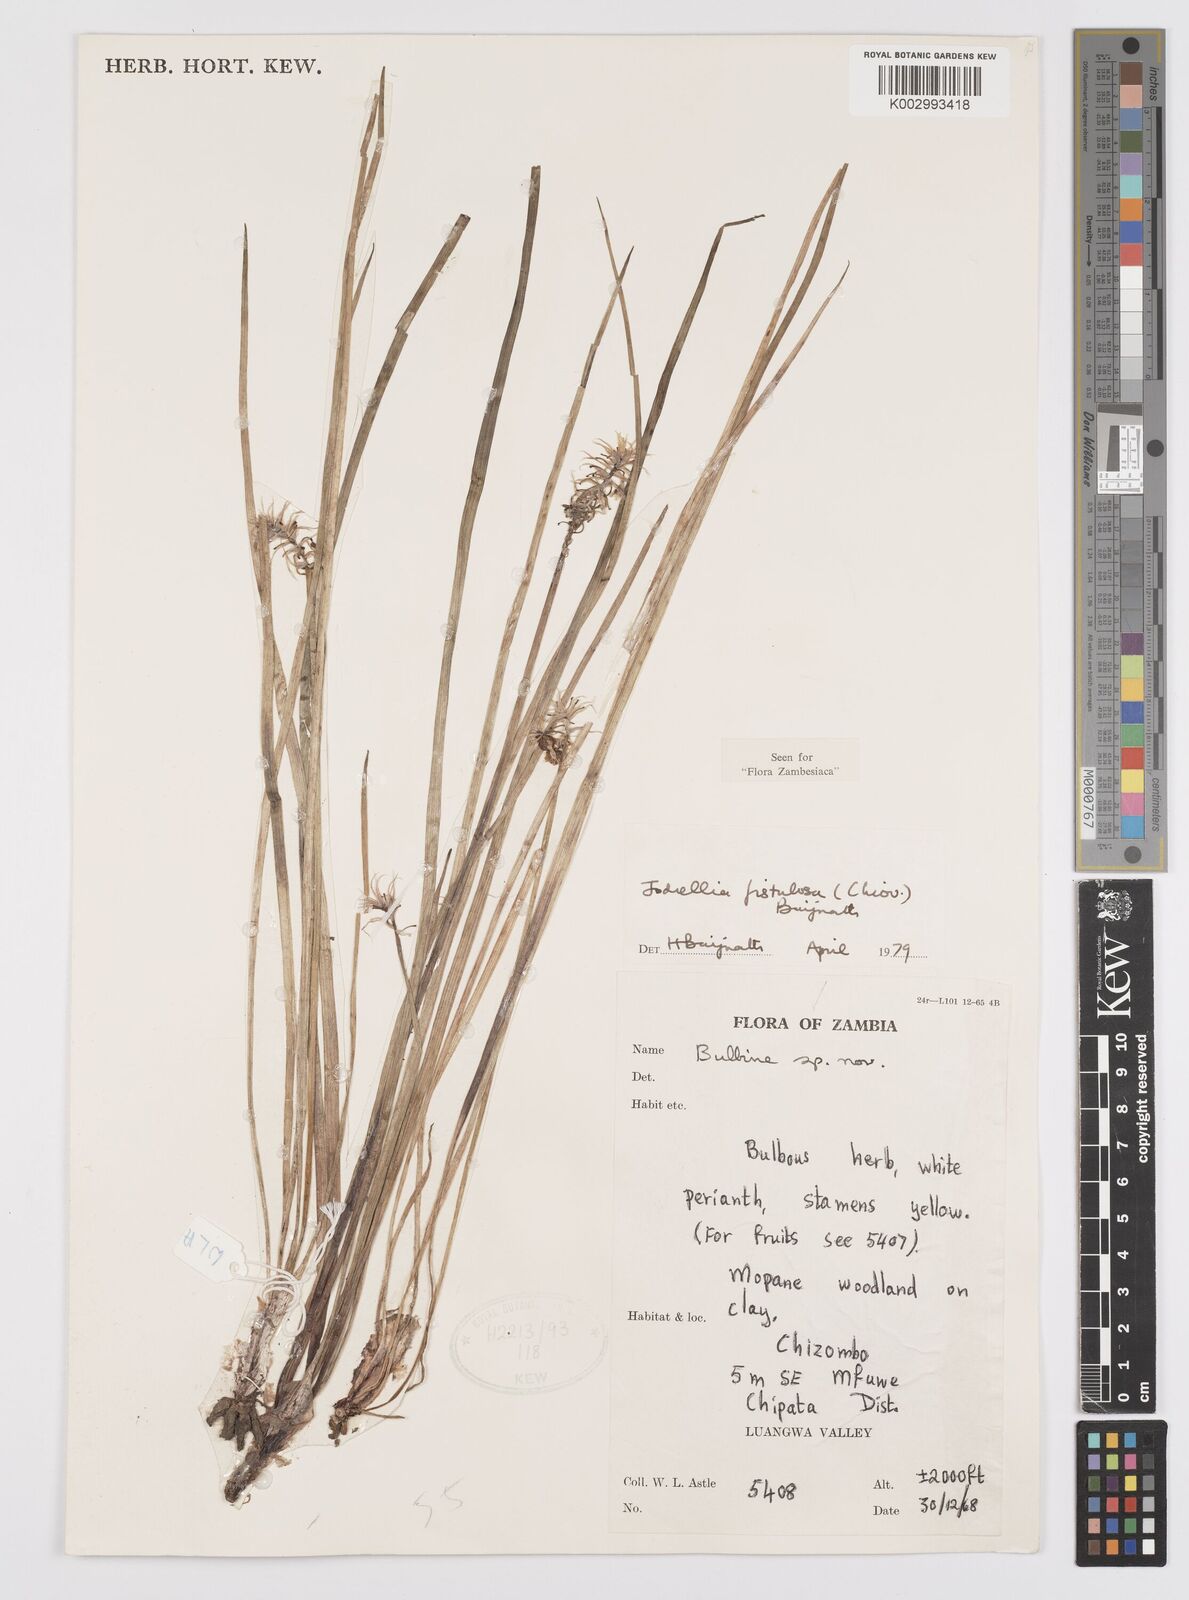 HERB. HORT. KEW.
ROYAL BOTANIC GARDENS KEW
K002993418
Seen for
"Flora Zambesiaca"
Jodrellia fistulosa (Chiov.)
Baijnath
DET HBaijnath April 1979
24r—L101 12-65 4B
FLORA OF ZAMBIA
Name Bulbine sp. nov.
Det.
Habit etc.
Bulbous herb, white
perianth, stamens yellow.
(For fruits see 5407).
Mopane woodland on
clay.
Habitat & loc.
Chizombo
5 m SE Mfuwe
Chipata Dist.
LUANGWA VALLEY
Coll. W. L. Astle 5408 Alt. ±2000ft
No. Date 30/12/68
ROYAL BOTANIC
H2213/93
118
KEW
55
inches
Density
Don Williams
centimeters
M000767
Kew
Royal Botanic Gardens
0 1 2 3 4 5 6 7 8 9 10
cm
copyright reserved